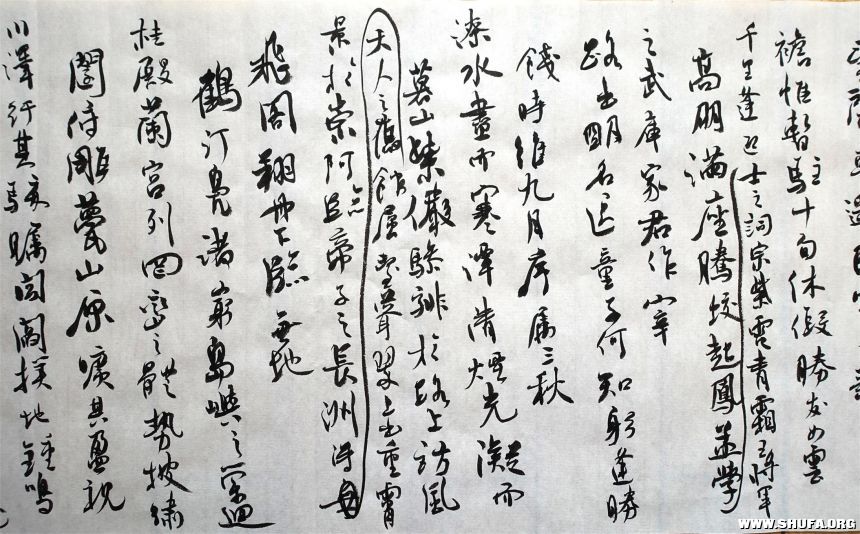 襜惟暫駐十旬休假勝友如雲
千里逢迎士之詞宗紫電青霜王將軍
高朋滿座騰蛟起鳳孟學
之武庫家君作宰
路出名區童子何知躬逢勝
餞時維九月序屬三秋
潦水盡而寒潭清煙光凝而
暮山紫儼驂騑於路上訪風
景於崇阿臨帝子之長洲得
天人之舊館層巒聳翠上出重霄
飛閣翔丹下臨無地
鶴汀鳧渚窮島嶼之縈迴
桂殿蘭宮列岡巒之體勢披繡
闥俯雕甍山原曠其盈視
川澤紆其駭矚閭閻撲地鐘鳴
WWW.SHUFA.ORG